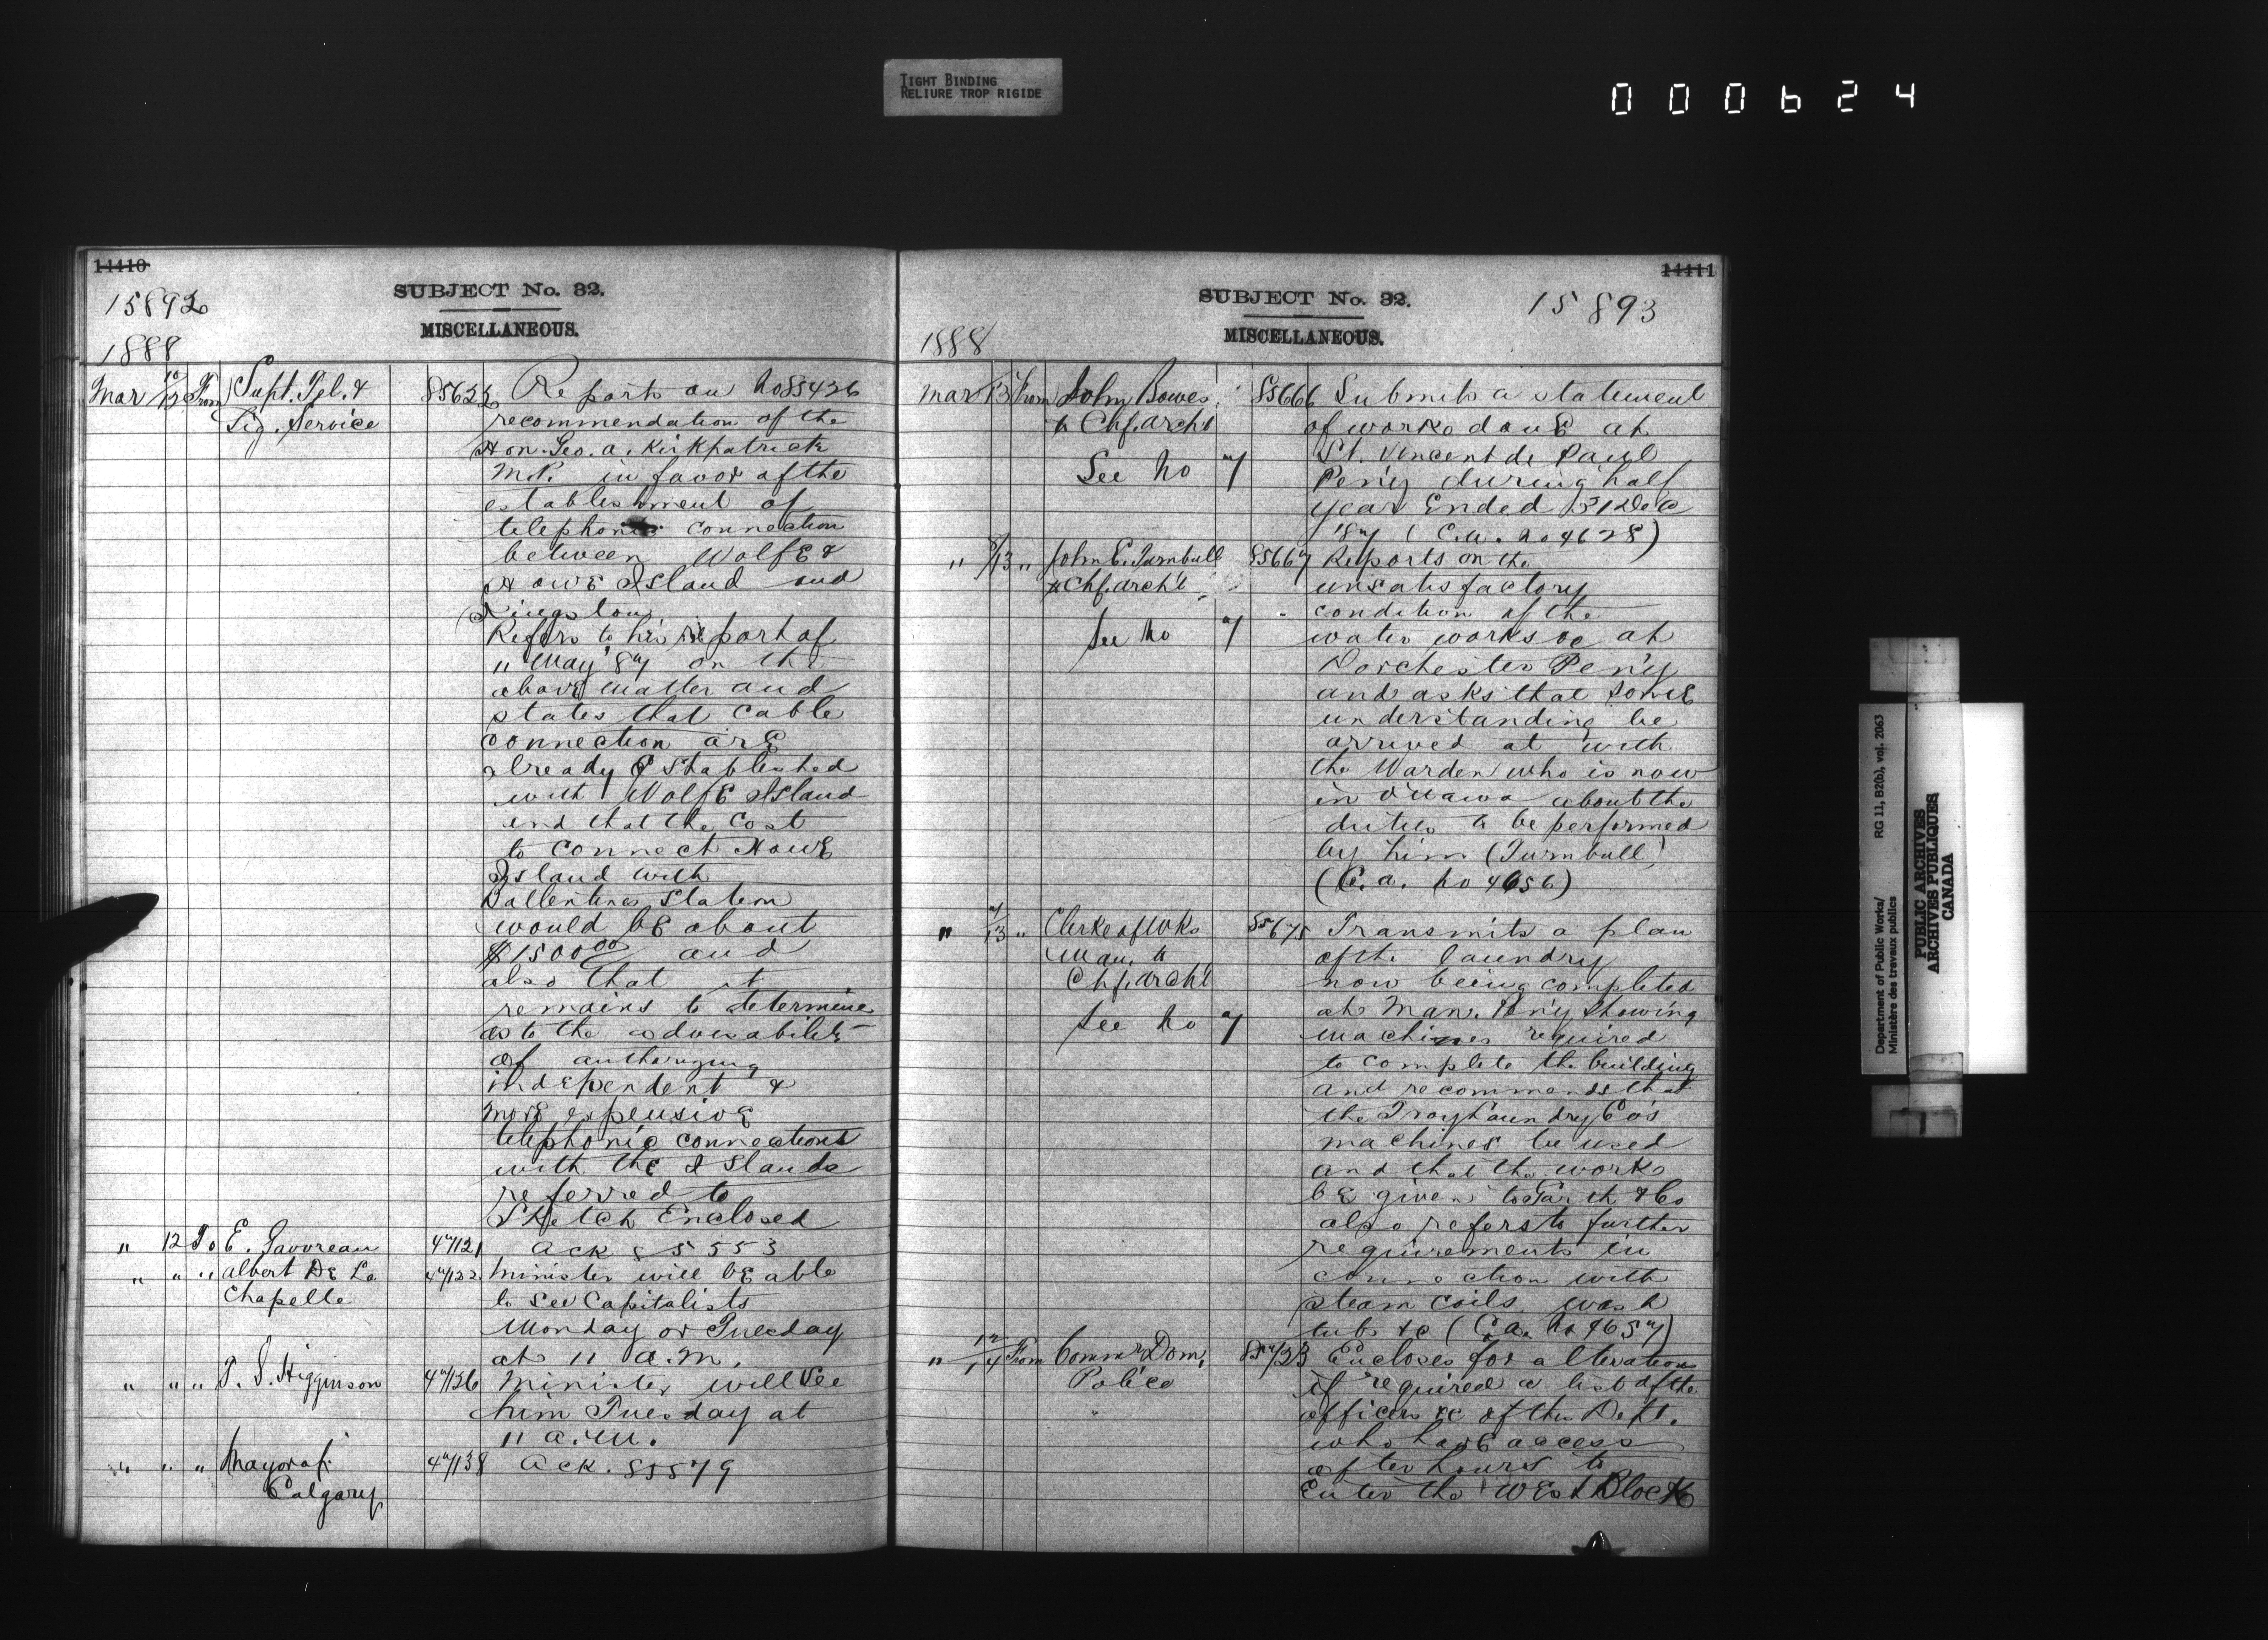 TIGHT BINDING
RELIURE TROP RIGIDE
000624
14410
15892
SUBJECT No. 32.
MISCELLANEOUS.
1888
Mar 10/12 From Supt. Tel. & 85622 Reports on No 85426
Sig. Service recommendation of the
Hon. Geo. A. Kirkpatrick
M.P. in favor of the
establishment of
telephonic connection
between Wolfe &
Howe Island and
Kingston
Refers to his report of
11 May '87 on the
above matter and
states that cable
connection are
already Established
with Wolfe Island
and that the cost
to connect Howe
Island with
Ballentines Station
would be about
$1500.00 and
also that it
remains to determine
as to the advisability
of authorizing
independent &
more expensive
telephonic connections
with the Islands
referred to
Sketch Enclosed
" 12 To E. Gavreau 47121 Ack 85553
" " " Albert De La 47122 Minister will be able
Chapelle to see Capitalists
Monday or Tuesday
at 11 a.m.
" " " T. S. Higginson 47126 Minister will see
him Tuesday at
11 a.m.
" " " Mayor of 47138 Ack. 85579
Calgary
14411
SUBJECT No. 32.
15893
MISCELLANEOUS.
1888
Mar 13 From John Bowes 85666 Submits a statement
to Chf. Archt of works done at
See No 7 St. Vincent de Paul
Pen'y during half
year Ended 31 Dec
'87 (C.A. No 4628)
" 8/13 " John E. Turnbull 85667 Reports on the
to Chf. Archt unsatisfactory
condition of the
See No 7 water works &c at
Dorchester Pen'y
and asks that some
understanding be
arrived at with
the Warden who is now
in Ottawa about the
duties to be performed
by him (Turnbull)
(C.A. No 4656)
" 7/13 " Clerk of Wks 85675 Transmits a plan
Man. to of the laundry
Chf. Archt now being completed
See No 7 at Man. Pen'y showing
machines required
to complete the building
and recommends that
the Troy Laundry Co's
machines be used
and that the works
be given to Garth & Co
also refers to further
requirements in
connection with
steam coils, wash
tubs &c (C.A. No 4657)
" 12/14 From Commr Dom. 85723 Encloses for alterations
Police if required a list of the
officers &c of this Dept.
who have access
after hours to
Enter the West Block
Department of Public Works/ RG 11, B2(b), vol. 2063
Ministère des travaux publics
PUBLIC ARCHIVES
ARCHIVES PUBLIQUES
CANADA